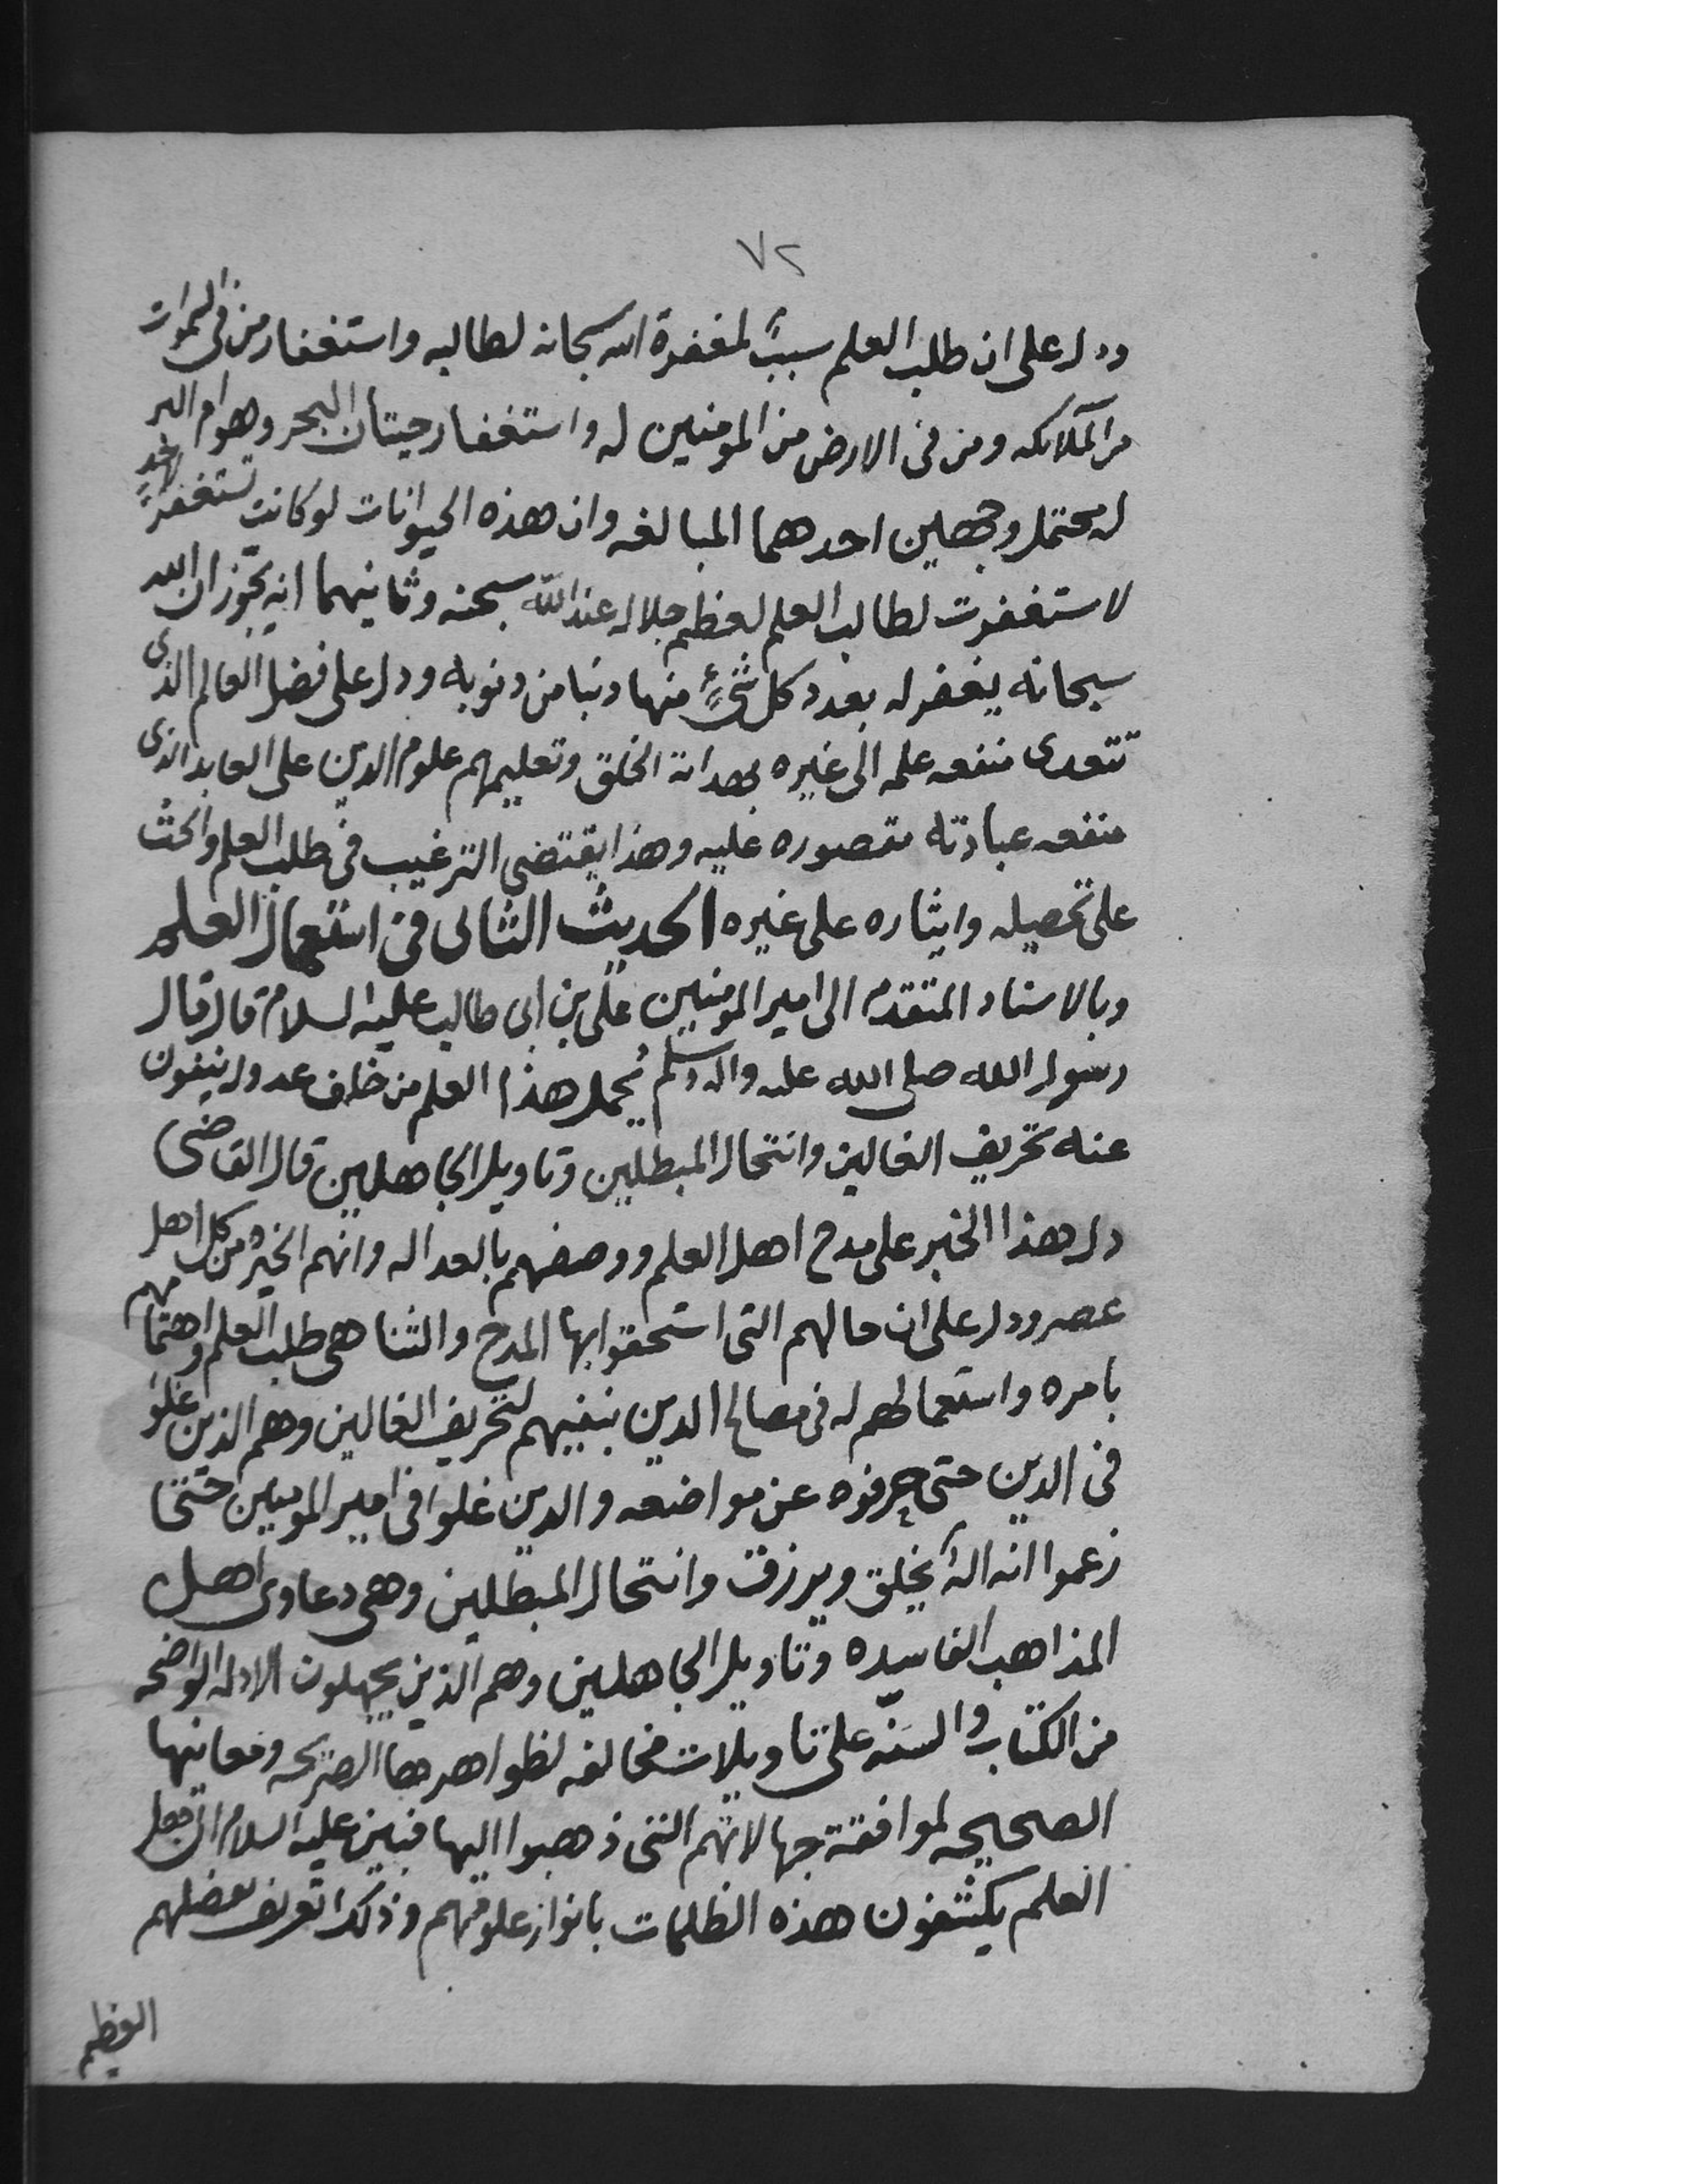 ٧٢
ودل على ان طلب العلم سببً لمغفرة الله سبحانه لطالبه واستغفار من في السموات
من الملائكه ومن في الارض من المومنين له واستغفار حيتان البحر وهوام البر
له يحتمل وجهين احدهما المبالغه وان هذه الحيوانات لو كانت تستغفر لاحدٍ
لاستغفرت لطالب العلم لعظم جلاله عند الله سبحنه وثانيهما انه يجوز ان الله
سبحانه يغفر له بعدد كل شيءٍ منها ذنبا من ذنوبه ودل على فضل العالم الذي
تتعدى منفعه علمه الى غيره بهداية الخلق وتعليمهم علوم الدين على العابد الذي
منفعه عبادته مقصوره عليه وهذا يقتضي الترغيب في طلب العلم والحث
على تحصيله وايثاره على غيره الحديث الثاني في استعمال العلم
وبالاسناد المتقدم الى امير المومنين علي بن ابي طالب عليه السلام قال قال
رسول الله صلى الله عليه واله وسلم يُحمل هذا العلم من خلف عدول ينفون
عنه تحريف الغالين وانتحال المبطلين وتاويل الجاهلين قال القاضي
دل هذا الخبر على مدح اهل العلم ووصفهم بالعداله وانهم الخير من كل اهل
عصر ودل على ان حالهم التي استحقوا بها المدح والثنا هي طلب العلم واهتمامهم
بامره واستعمالهم له في مصالح الدين بنفيهم لتحريف الغالين وهم الذين غلو
في الدين حتى حرفوه عن مواضعه والذين غلوا في امير المومنين حتى
زعموا انه الهٌ يخلق ويرزق وانتحال المبطلين وهي دعاوى اهل
المذاهب الفاسده وتاويل الجاهلين وهم الذين يجهلون الادله الواضحه
من الكتاب والسنّه على تاويلات مخالفه لظواهرها الصريحه ومعانيها
الصحيحه لموافقة جهالاتهم التي ذهبوا اليها فبين عليه السلام ان
العلم يكشفون هذه الظلمات بانوار علومهم وذلك تعريف بفضلهم
العظيم